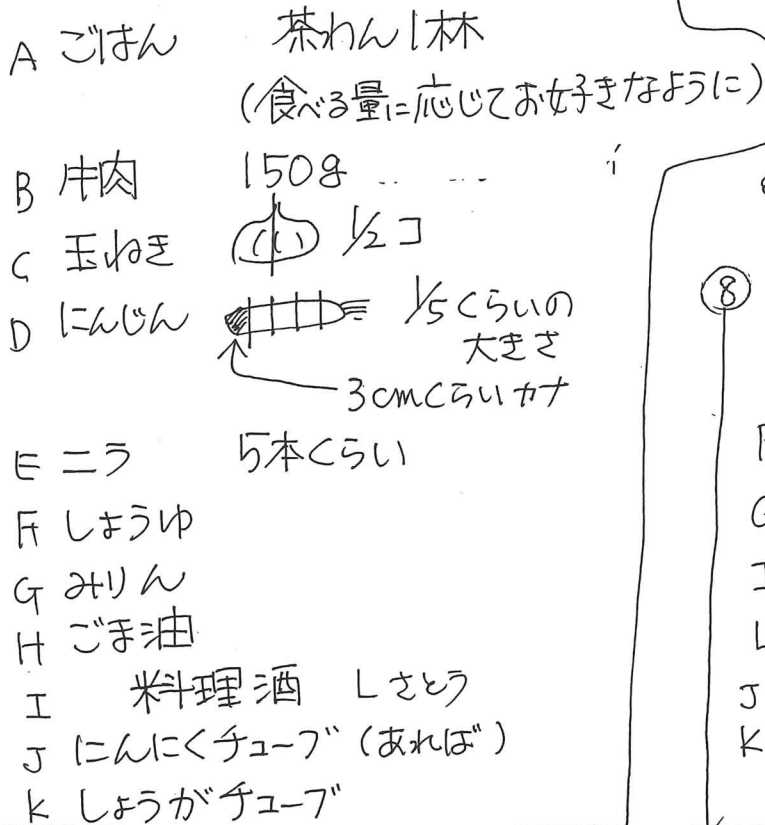 A ごはん 茶わん1杯
(食べる量に応じてお好きなように)
B 牛肉 150g
C 玉ねぎ 1/2コ
D にんじん 1/5くらいの
大きさ
3cmくらいカナ
E ニラ 5本くらい
F しょうゆ
G みりん
H ごま油
I 料理酒 L さとう
J にんにくチューブ(あれば)
K しょうがチューブ
⑧
J
K